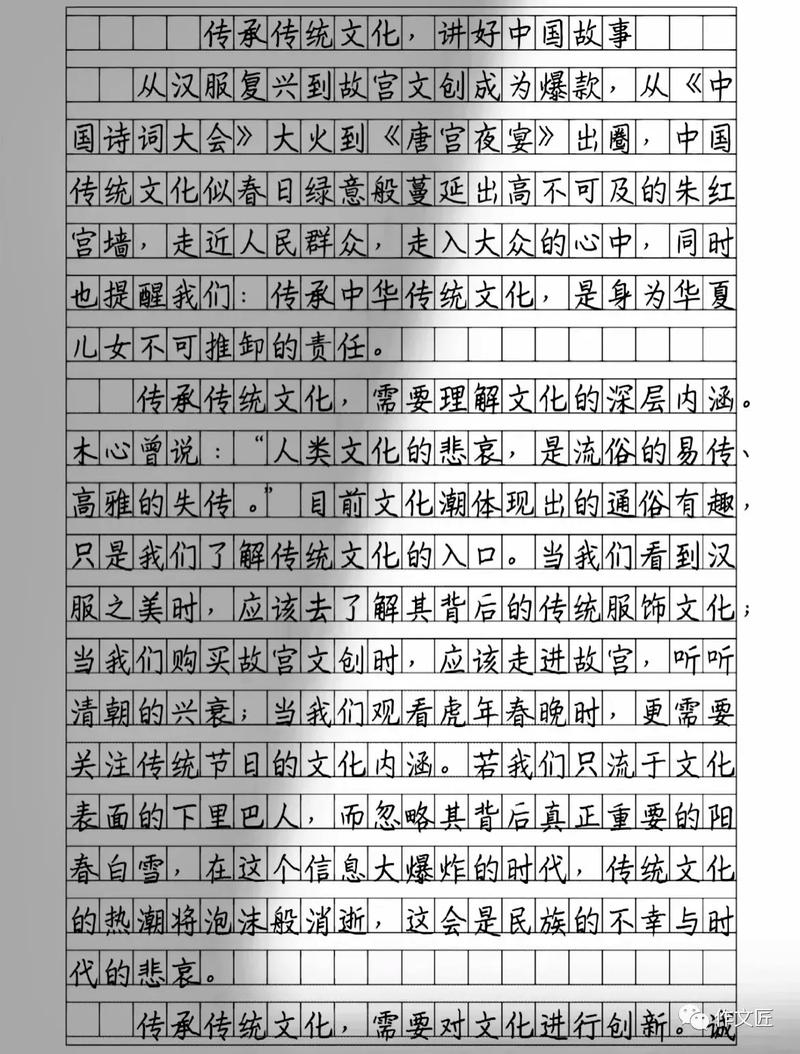 传承传统文化，讲好中国故事
从汉服复兴到故宫文创成为爆款，从《中
国诗词大会》大火到《唐宫夜宴》出圈，中国
传统文化似春日绿意般蔓延出高不可及的朱红
宫墙，走近人民群众，走入大众的心中，同时
也提醒我们：传承中华传统文化，是身为华夏
儿女不可推卸的责任。
传承传统文化，需要理解文化的深层内涵。
木心曾说：“人类文化的悲哀，是流俗的易传、
高雅的失传。”目前文化潮体现出的通俗有趣，
只是我们了解传统文化的入口。当我们看到汉
服之美时，应该去了解其背后的传统服饰文化；
当我们购买故宫文创时，应该走进故宫，听听
清朝的兴衰；当我们观看虎年春晚时，更需要
关注传统节目的文化内涵。若我们只流于文化
表面的下里巴人，而忽略其背后真正重要的阳
春白雪，在这个信息大爆炸的时代，传统文化
的热潮将泡沫般消逝，这会是民族的不幸与时
代的悲哀。
传承传统文化，需要对文化进行创新。诚
作文匠